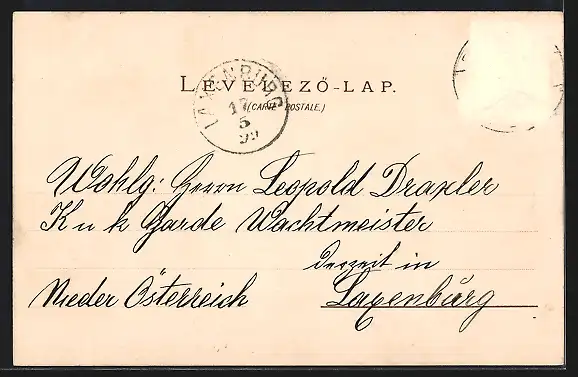 LEVELEZŐ-LAP.
(CARTE POSTALE.)
LAXENBURG
17
5
99
Wohlg: Herrn Leopold Draxler
K u k Garde Wachtmeister
derzeit in
Nieder Österreich Laxenburg